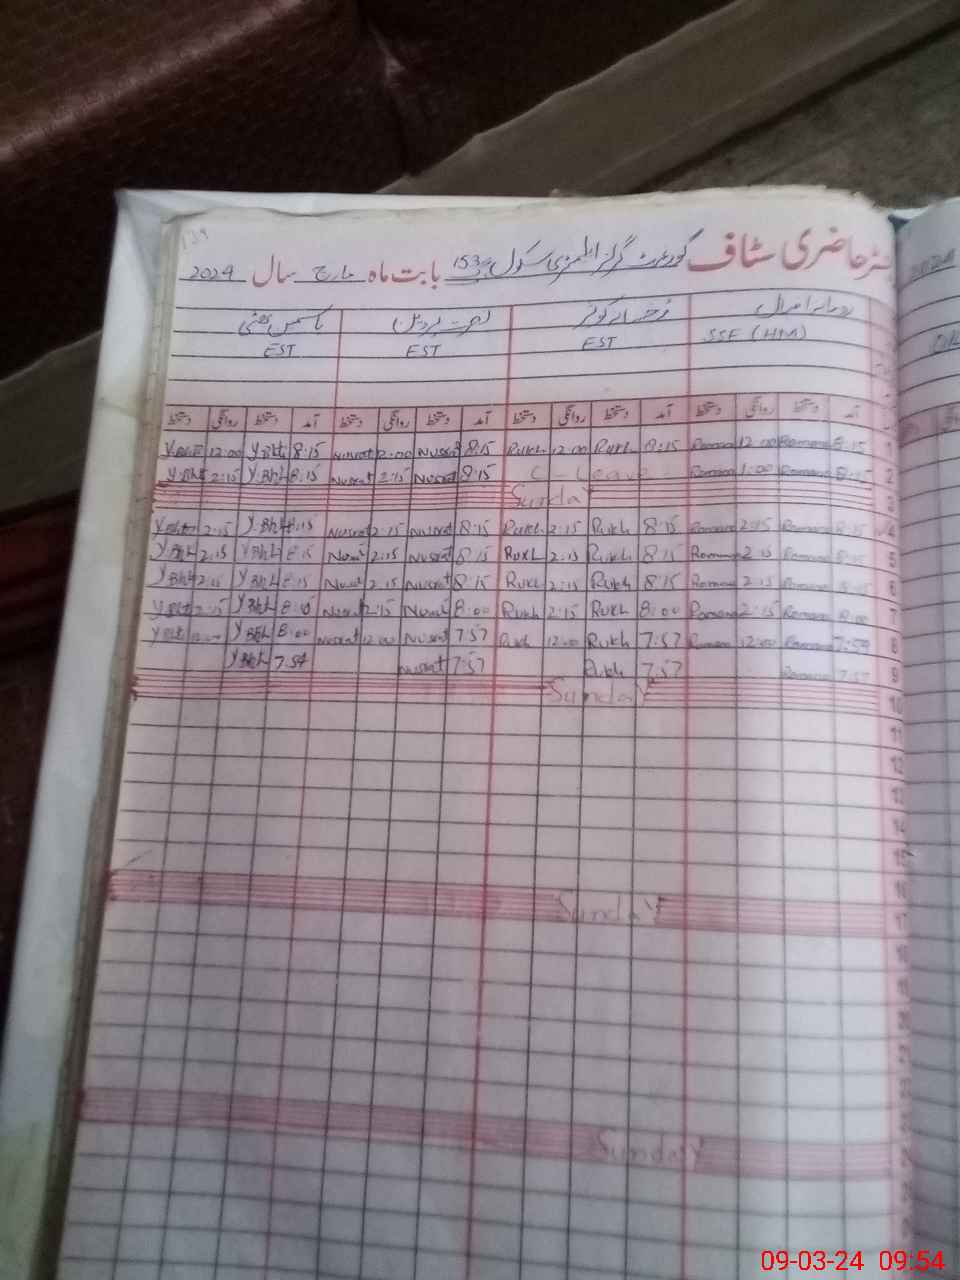 139
رجسٹر حاضری سٹاف گورنمنٹ گرلز ایلیمنٹری سکول 153 بابت ماہ مارچ سال 2024
یاسمین بھٹی نصرت پروین رخسانہ کوثر
EST EST EST SSE (HM)
آمد دستخط روانگی دستخط آمد دستخط روانگی دستخط آمد دستخط روانگی دستخط آمد دستخط روانگی دستخط
Y.Bhtti 12:00 Y.Bhti 8:15 Nusrat 12:00 Nusrat 8:15 Rukh 12:00 Rukh 8:15 Romana 12:00 Romana 8:15 1
Y.Bhti 2:15 Y.Bhti 8:15 Nusrat 2:15 Nusrat 8:15 C-Leave Romana 1:00 Romana 8:15 2
Sunday 3
Y.Bhti 2:15 Y.Bhti 8:15 Nusrat 2:15 Nusrat 8:15 Rukh 2:15 Rukh 8:15 Romana 2:15 Romana 8:15 4
Y.Bhti 2:15 Y.Bhti 8:15 Nusrat 2:15 Nusrat 8:15 Rukh 2:15 Rukh 8:15 Romana 2:15 Romana 8:15 5
Y.Bhti 2:15 Y.Bhti 8:15 Nusrat 2:15 Nusrat 8:15 Rukh 2:15 Rukh 8:15 Romana 2:15 Romana 8:15 6
Y.Bhti 2:15 Y.Bhti Nusrat 2:15 Nusrat 8:00 Rukh 2:15 Rukh 8:00 Romana 2:15 Romana 8:00 7
Y.Bhti 12:00 Y.Bhti 8:00 Nusrat 12:00 Nusrat 7:57 Rukh 12:00 Rukh 7:57 Romana 12:00 Romana 7:59 8
Y.Bhti 7:54 Nusrat 7:57 Rukh 7:57 Romana 7:57 9
Sunday 10
11
12
13
14
15
16
Sunday 17
18
19
20
21
Sunday
2024
09-03-24 09:54